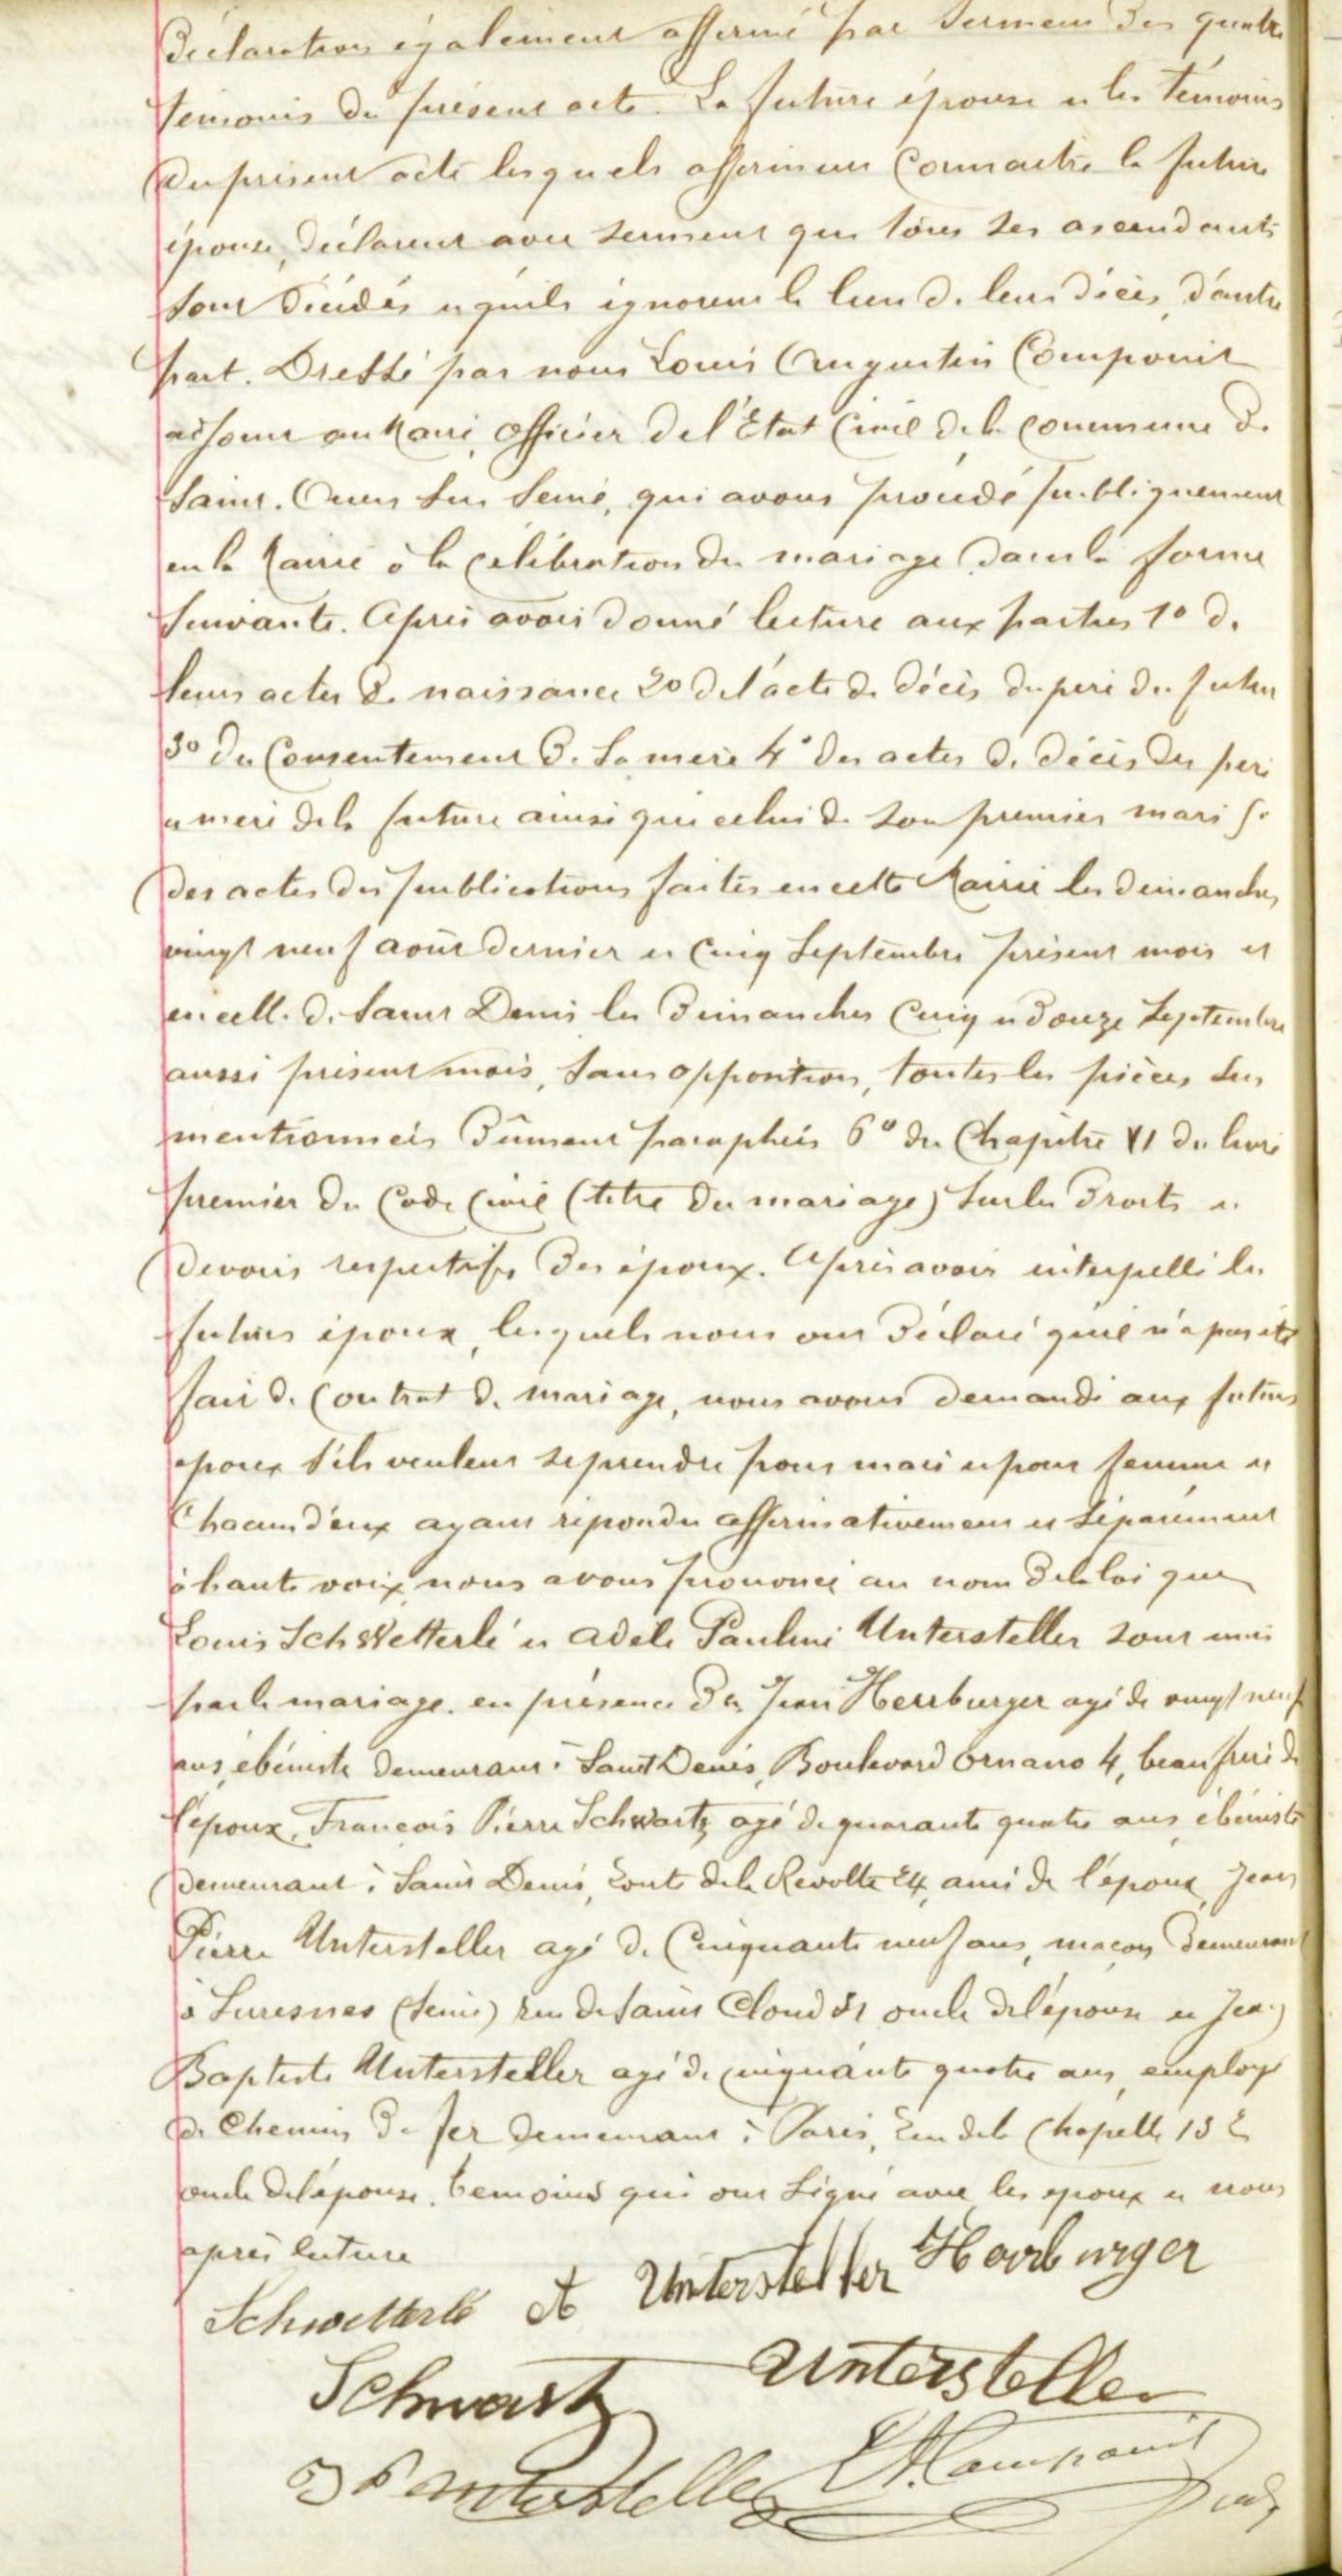 Déclaration également affirmé par serment des quatre
témoins du présent acte. La future épouse et les témoins
du présent acte lesquels affirment connaître la future
épouse, déclarent avec serment que tous ses ascendants
sont décédés et qu'ils ignorent le lieu de leur décès, d'autre
part. Dressé par nous Louis Augustin Compoint
adjoint au Maire, officier de l'État Civil de la commune de
Saint. Ouen sur Seine, qui avons procédé publiquement
en la Mairie à la célébration du mariage dans la forme
suivante. Après avoir donné lecture aux parties 1º de
leurs actes de naissance 2º de l'acte de décès du père du futur
3º du Consentement de sa mère 4º des actes de décès des père
et mère de la future ainsi que celui de son premier mari 5º
des actes des publications faites en cette Mairie les dimanches
vingt neuf août dernier et cinq Septembre présent mois et
en celle de Saint Denis les Dimanches cinq et douze Septembre
aussi présent mois, sans opposition, toutes les pièces sus
mentionnées dûment paraphées 6º du Chapitre VI du livre
premier du Code Civil (titre du mariage) sur les droits et
devoirs respectifs des époux. Après avoir interpellé les
futurs époux, lesquels nous ont déclaré qu'il n'a pas été
fait de Contrat de mariage, nous avons demandé aux futurs
époux s'ils veulent se prendre pour mari et pour femme et
Chacun d'eux ayant répondu affirmativement et séparément
à haute voix, nous avons prononcé au nom de la loi que
Louis Schwetterlé et Adèle Pauline Untersteller sont unis
par le mariage. en présence de Jean Herrburger agé de vingt neuf
ans, ébéniste demeurant à Saint Denis, Boulevard Ornano 4, beau frère de
l'époux, François Pierre Schwartz agé de quarante quatre ans ébéniste
demeurant à Saint Denis, route de la Révolte 24, ami de l'époux, Jean
Pierre Untersteller agé de Cinquante neuf ans, maçon demeurant
à Suresnes (Seine) rue de Saint Cloud oncle de l'épouse et Jean
Baptiste Untersteller agé de cinquante quatre ans, employé
de Chemin de fer demeurant à Paris, rue de la Chapelle
oncle de l'épouse. Témoins qui ont signé avec les époux et nous
après lecture
Schwetterlé A Untersteller Herrburger
Schwartz Untersteller
Untersteller LA. Compoint